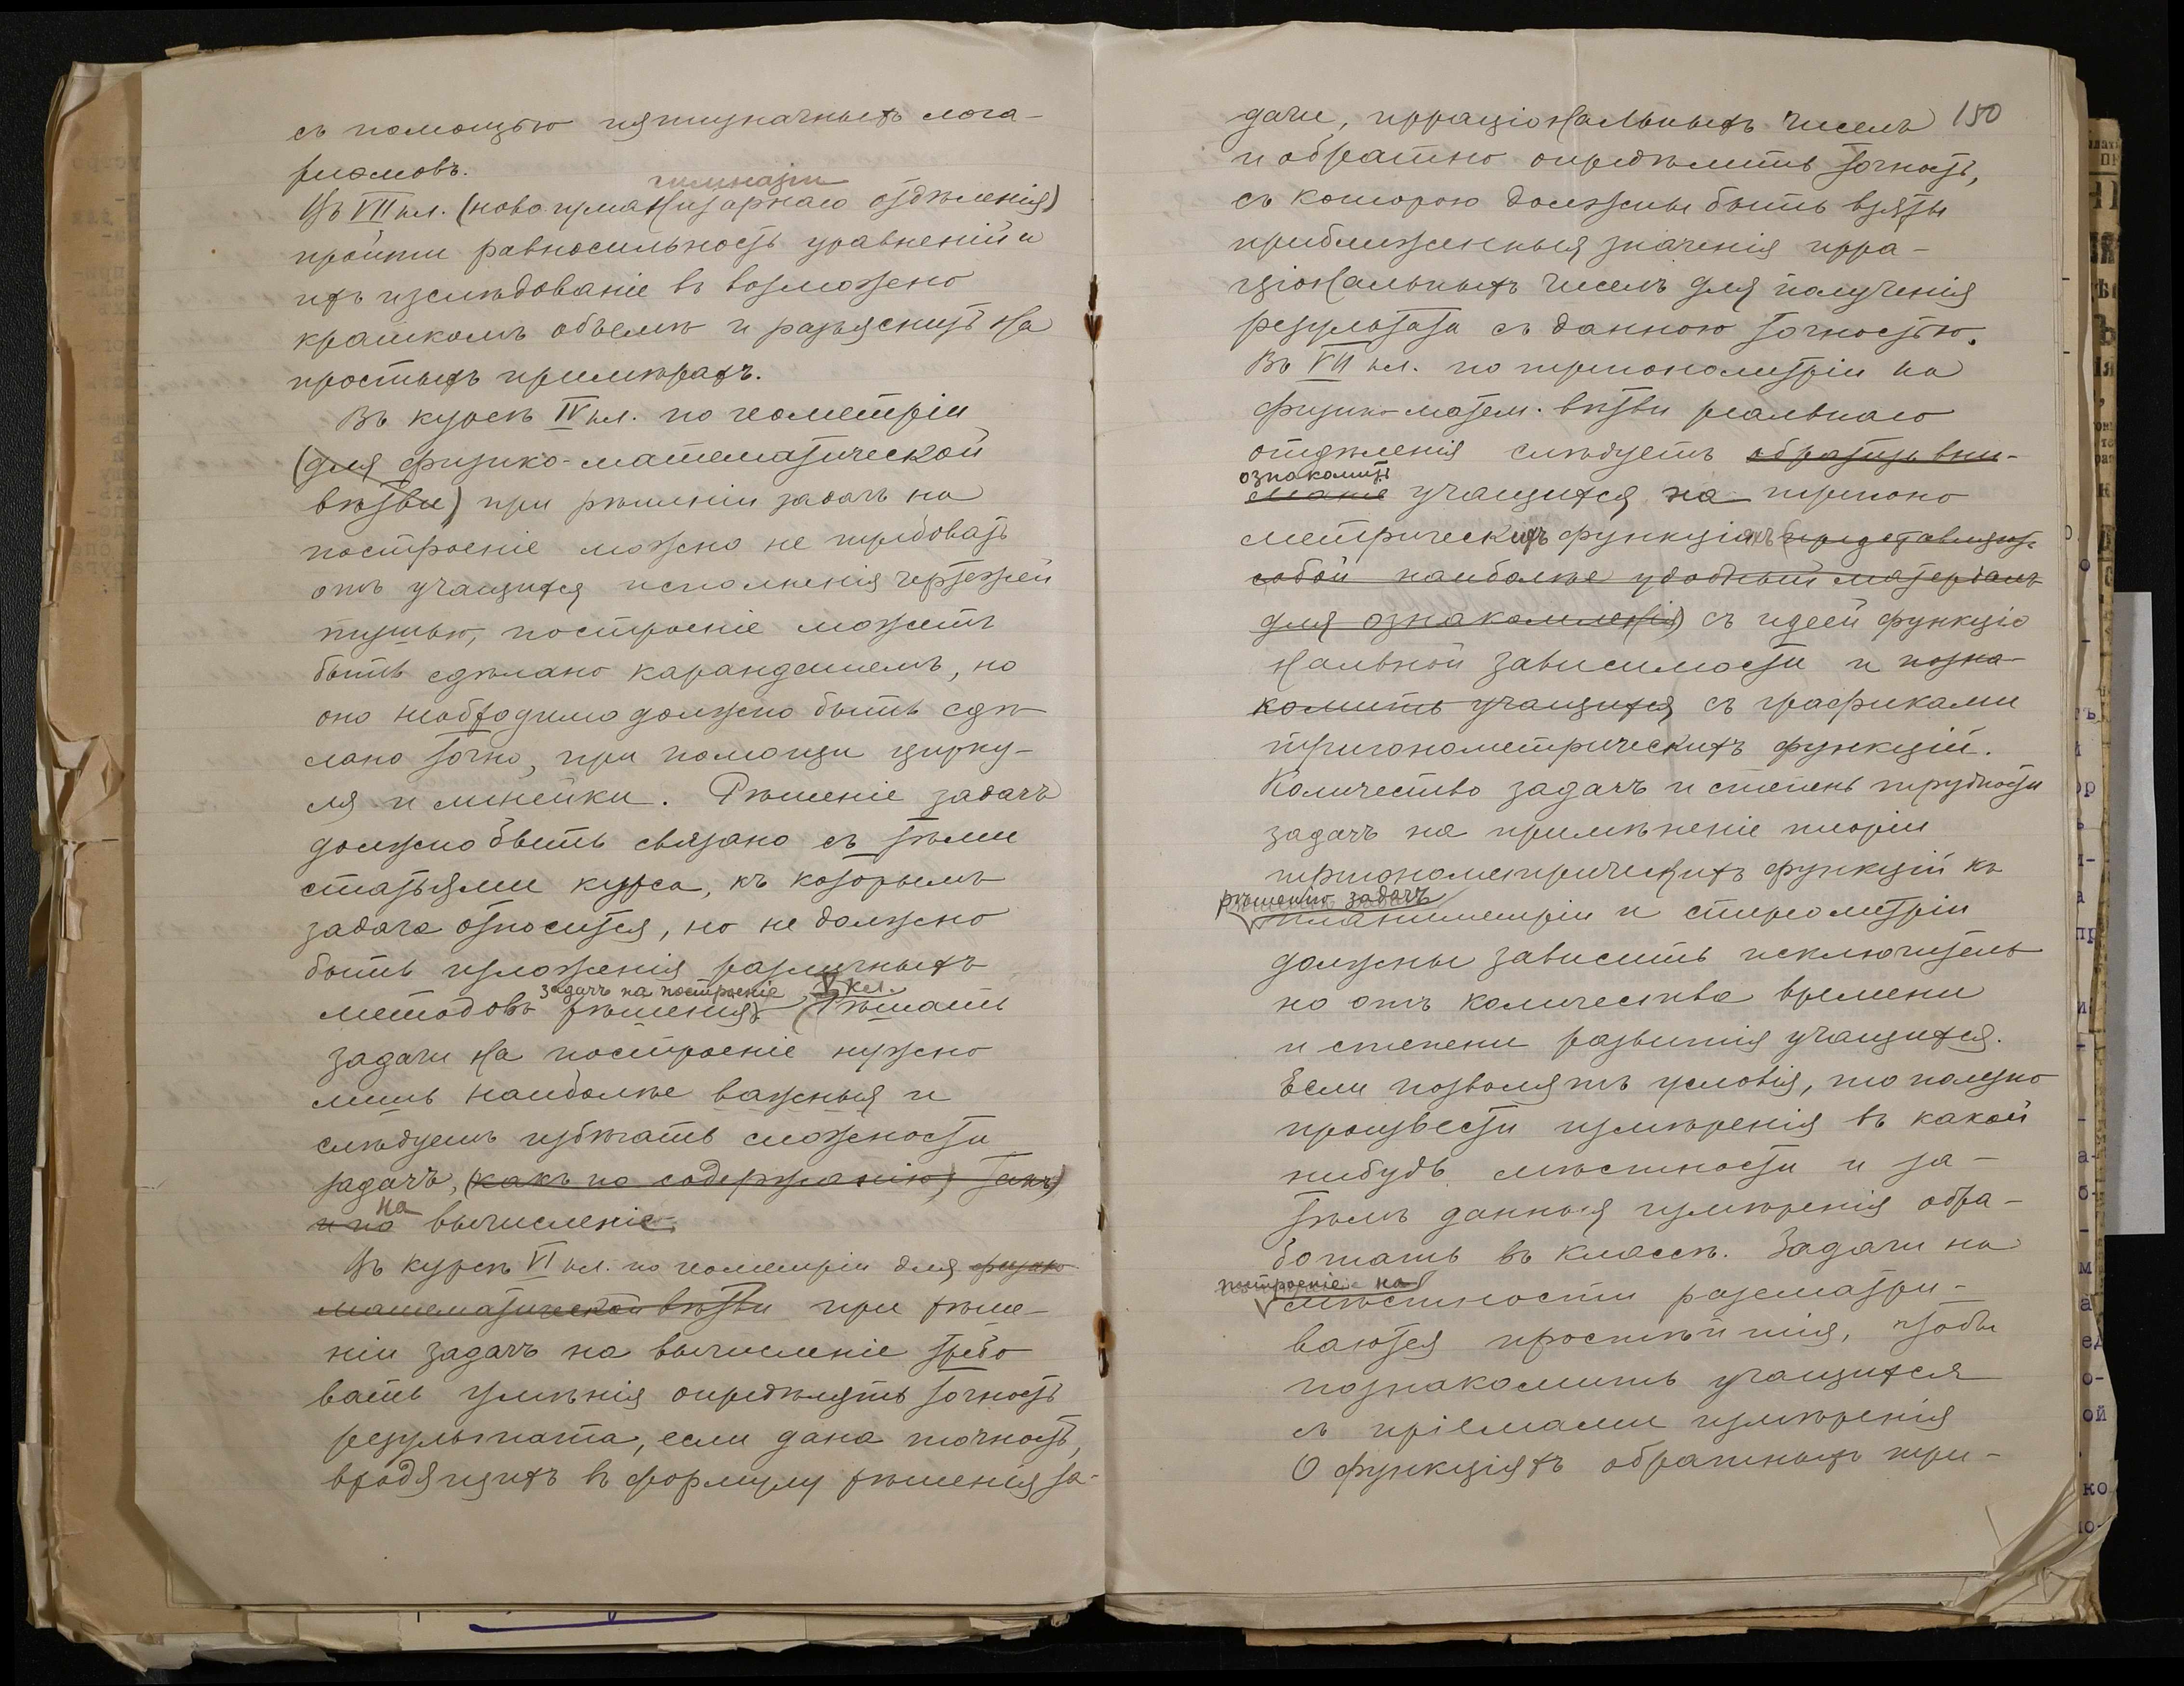 съ помощью пятизначныхъ лога-
риѳмовъ.
гимназіи
Въ VII кл. (новогуманитарнаго отдѣленія)
пройти равносильность уравненій и
ихъ изслѣдованіе въ возможено
краткомъ объемѣ и разъяснить на
простыхъ примѣрахъ.
Въ курсѣ IV кл. по геометріи
(для физико-математической
вѣтви) при рѣшеніи задачъ на
построеніе можно не требовать
отъ учащихся исполненія чертежей
тушью, построеніе можетъ
быть сдѣлано карандашемъ, но
оно необходимо должно быть сдѣ
лано точно, при помощи цирку-
ля и линейки. Рѣшеніе задачъ
должно быть связано съ тѣми
статьями курса, къ которымъ
задача относится, но не должно
быть изложенія различныхъ
задачъ на построеніе V кл.
методовъ рѣшенія). (Рѣшать
задачи на построеніе нужно
лишь наиболѣе важныя и
слѣдуетъ избѣгать сложности
задачъ, (какъ по содержанію, такъ)
на
и по вычисленіе.
Въ курсѣ VI кл. по геометріи для физико
математической вѣтви при рѣше-
ніи задачъ на вычисленіе требо
вать умѣнія опредѣлять точность
результата, если дана точность,
входящихъ въ формулу рѣшенія за-
150
дачи, ирраціональныхъ чиселъ
и обратно опредѣлить точность,
съ которою должны быть взяты
приближенныя значенія ирра-
ціональныхъ чиселъ для полученія
результата съ данною точностью.
Въ VII кл. по тригонометріи на
физико-матем. вѣтви реальнаго
отдѣленія слѣдуетъ обратить вни-
ознакомить
маніе учащихся на тригоно
метрическихъ функціяхъ (представляющ.
собой наиболѣе удобный матеріалъ
для ознакомленія) съ идеей функціо
нальной зависимости и позна-
комить учащихся съ графиками
тригонометрическихъ функцій.
Количество задачъ и степень трудности
задачъ на примѣненіе теоріи
тригонометрическихъ функцій къ
рѣшенію задачъ
планиметріи и стереометріи
должны зависить исключитель
но отъ количества времени
и степени развитія учащихся.
Если позволятъ условія, то полезно
произвести измѣренія въ какой
нибудь мѣстности и за-
тѣмъ данныя измѣренія обра-
ботать въ классѣ. Задачи на
построеніе на
мѣстности разсматри-
ваются простѣйшія, чтобы
познакомить учащихся
съ пріемами измѣренія
О функціяхъ обратныхъ три-